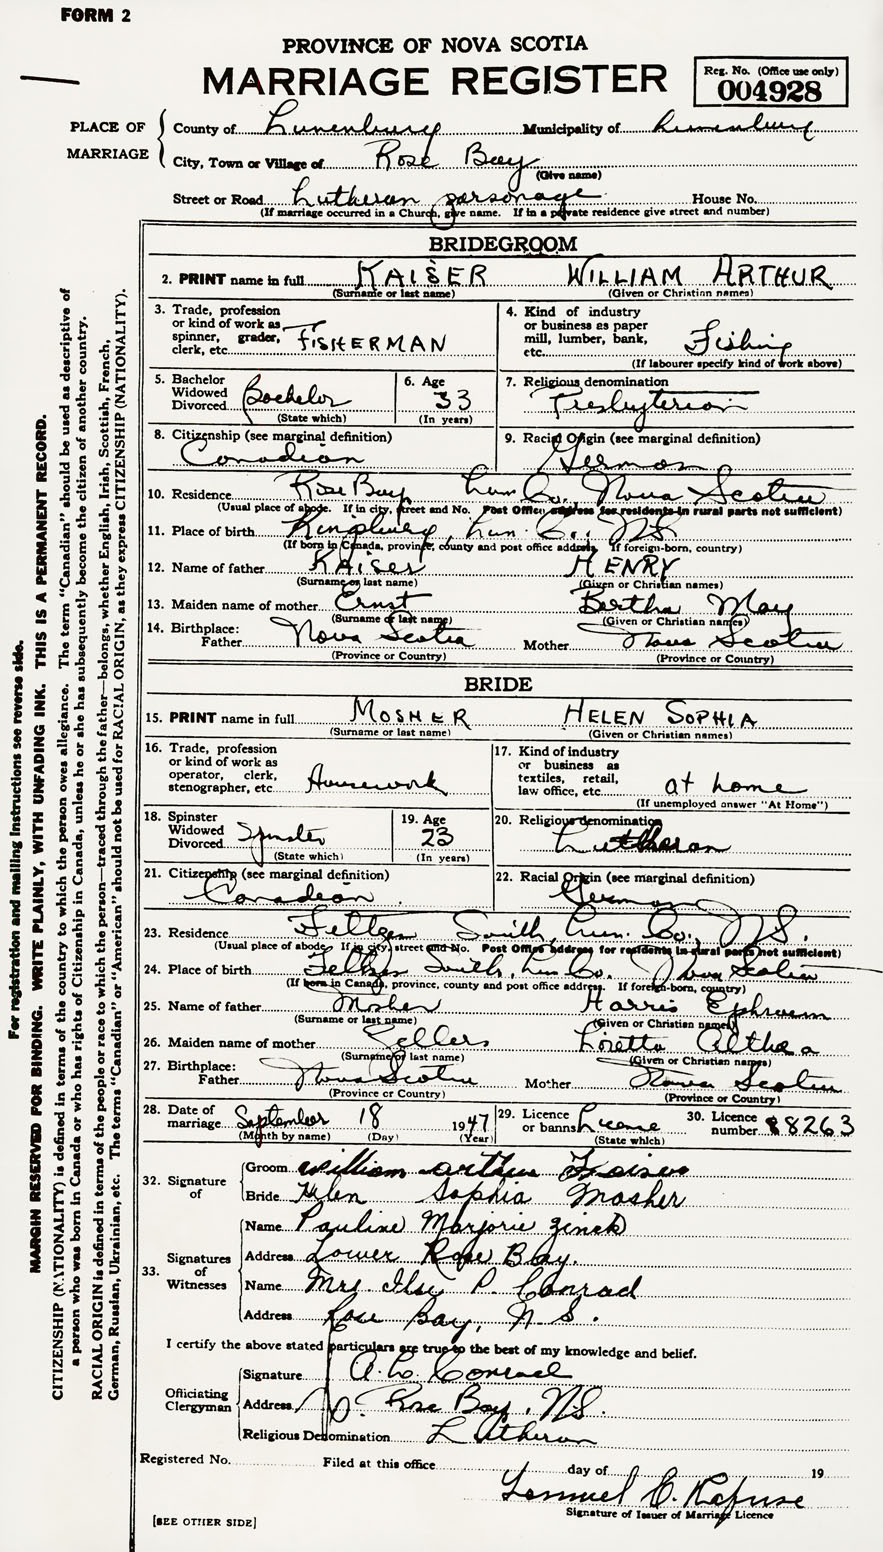 FORM 2
PROVINCE OF NOVA SCOTIA
MARRIAGE REGISTER
Reg. No. (Office use only)
004928
PLACE OF MARRIAGE
County of Lunenburg Municipality of Lunenburg
City, Town or Village of Rose Bay
(Give name)
Street or Road Lutheran parsonage House No.
(If marriage occurred in a Church, give name. If in a private residence give street and number)
BRIDEGROOM
2. PRINT name in full KAISER WILLIAM ARTHUR
(Surname or last name) (Given or Christian names)
3. Trade, profession or kind of work as spinner, grader, clerk, etc. FISHERMAN
4. Kind of industry or business as paper mill, lumber, bank, etc. Fishing
(If labourer specify kind of work above)
5. Bachelor Widowed Divorced Bachelor
(State which)
6. Age 33
(In years)
7. Religious denomination
Presbyterian
8. Citizenship (see marginal definition)
Canadian
9. Racial Origin (see marginal definition)
German
10. Residence Rose Bay Lun. Co. Nova Scotia
(Usual place of abode. If in city, street and No. Post Office address for residents in rural parts not sufficient)
11. Place of birth Kingsburg, Lun. Co., N.S.
(If born in Canada, province, county and post office address. If foreign-born, country)
12. Name of father KAISER HENRY
(Surname or last name) (Given or Christian names)
13. Maiden name of mother Ernst Bertha May
(Surname or last name) (Given or Christian names)
14. Birthplace:
Father Nova Scotia Mother Nova Scotia
(Province or Country) (Province or Country)
BRIDE
15. PRINT name in full MOSHER HELEN SOPHIA
(Surname or last name) (Given or Christian names)
16. Trade, profession or kind of work as operator, clerk, stenographer, etc. Housework
17. Kind of industry or business as textiles, retail, law office, etc. at home
(If unemployed answer "At Home")
18. Spinster Widowed Divorced Spinster
(State which)
19. Age 23
(In years)
20. Religious denomination
Lutheran
21. Citizenship (see marginal definition)
Canadian
22. Racial Origin (see marginal definition)
German
23. Residence Feltzen South, Lun. Co., N.S.
(Usual place of abode. If in city, street and No. Post Office address for residents in rural parts not sufficient)
24. Place of birth Feltzen South, Lun Co. Nova Scotia
(If born in Canada, province, county and post office address. If foreign-born, country)
25. Name of father Mosher Harris Ephraim
(Surname or last name) (Given or Christian names)
26. Maiden name of mother Sellers Loretta Althea
(Surname or last name) (Given or Christian names)
27. Birthplace:
Father Nova Scotia Mother Nova Scotia
(Province or Country) (Province or Country)
28. Date of marriage September 18 1947
(Month by name) (Day) (Year)
29. Licence or banns License
(State which)
30. Licence number 88263
32. Signature of
Groom William Arthur Kaiser
Bride Helen Sophia Mosher
33. Signatures of Witnesses
Name Pauline Marjorie Zinck
Address Lower Rose Bay.
Name Mrs Ilse P. Conrad
Address Rose Bay, N.S.
I certify the above stated particulars are true to the best of my knowledge and belief.
Officiating Clergyman
Signature A. L. Conrad
Address Rose Bay, N.S.
Religious Denomination Lutheran
Registered No. Filed at this office day of 19
Lemuel C. Rafuse
Signature of Issuer of Marriage Licence
[SEE OTHER SIDE]
For registration and mailing instructions see reverse side.
MARGIN RESERVED FOR BINDING. WRITE PLAINLY, WITH UNFADING INK. THIS IS A PERMANENT RECORD.
CITIZENSHIP (NATIONALITY) is defined in terms of the country to which the person owes allegiance. The term "Canadian" should be used as descriptive of
a person who was born in Canada or who has rights of Citizenship in Canada, unless he or she has subsequently become the citizen of another country.
RACIAL ORIGIN is defined in terms of the people or race to which the person—traced through the father—belongs, whether English, Irish, Scottish, French,
German, Russian, Ukrainian, etc. The terms "Canadian" or "American" should not be used for RACIAL ORIGIN, as they express CITIZENSHIP (NATIONALITY).